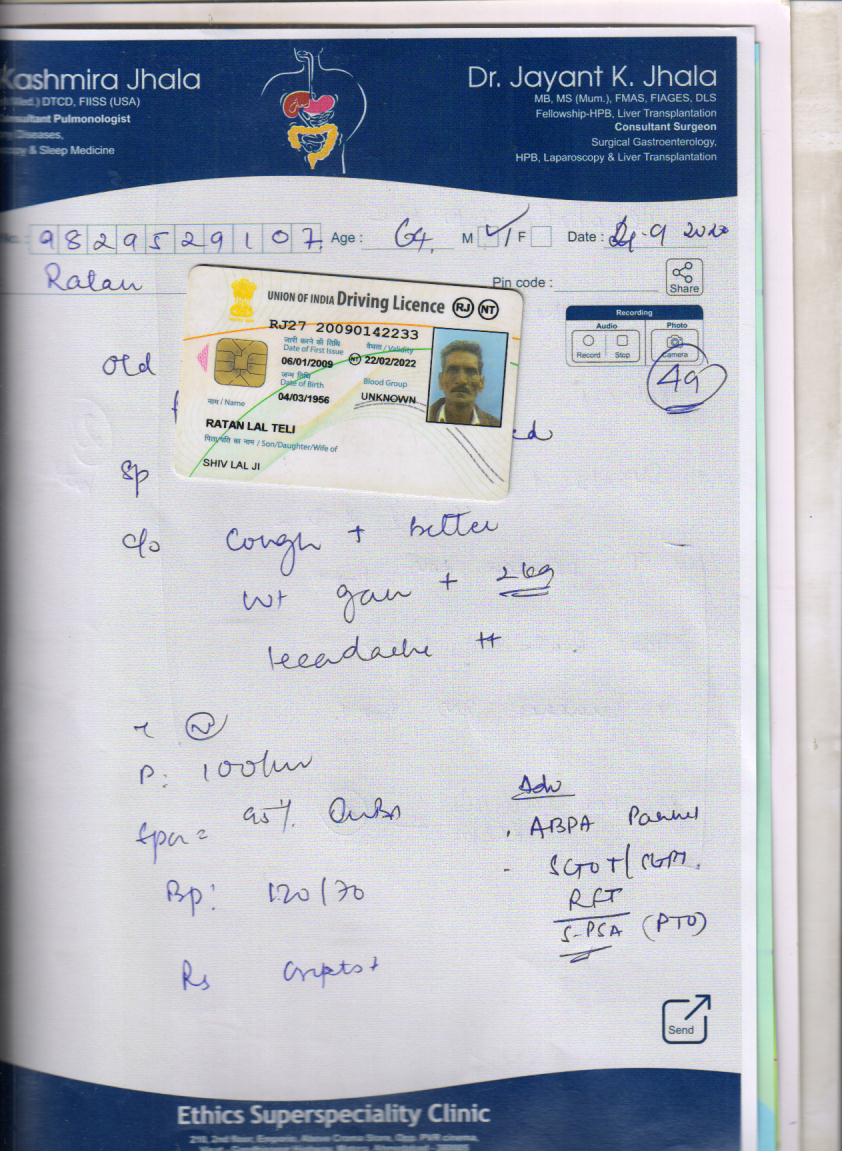 Kashmira Jhala
DTCD, FIISS (USA)
Consultant Pulmonologist
Diseases,
& Sleep Medicine
Dr. Jayant K. Jhala
MB, MS (Mum.), FMAS, FIAGES, DLS
Fellowship-HPB, Liver Transplantation
Consultant Surgeon
Surgical Gastroenterology,
HPB, Laparoscopy & Liver Transplantation
9829529107 Age : 64. M ✓ F Date : 9 2020
Ratan Pin code :
Share
Recording
Audio Photo
Record Stop Camera
49
UNION OF INDIA Driving Licence RJ NT
RJ27 20090142233
जारी करने की तिथि वैधता / Validity
Date of First Issue
06/01/2009 NT 22/02/2022
जन्म तिथि
Date of Birth Blood Group
04/03/1956 UNKNOWN
नाम / Name
RATAN LAL TELI
पिता/पति का नाम / Son/Daughter/Wife of
SHIV LAL JI
old
Sp
c/o Cough + better
Wt gain + 2 kg
Headache ++
N
P: 100/min
95%
Bp: 120/70
Rs crepts +
Adv
. ABPA Pannel
- SGOT/SGPT.
RFT
S-PSA (PTO)
Send
Ethics Superspeciality Clinic